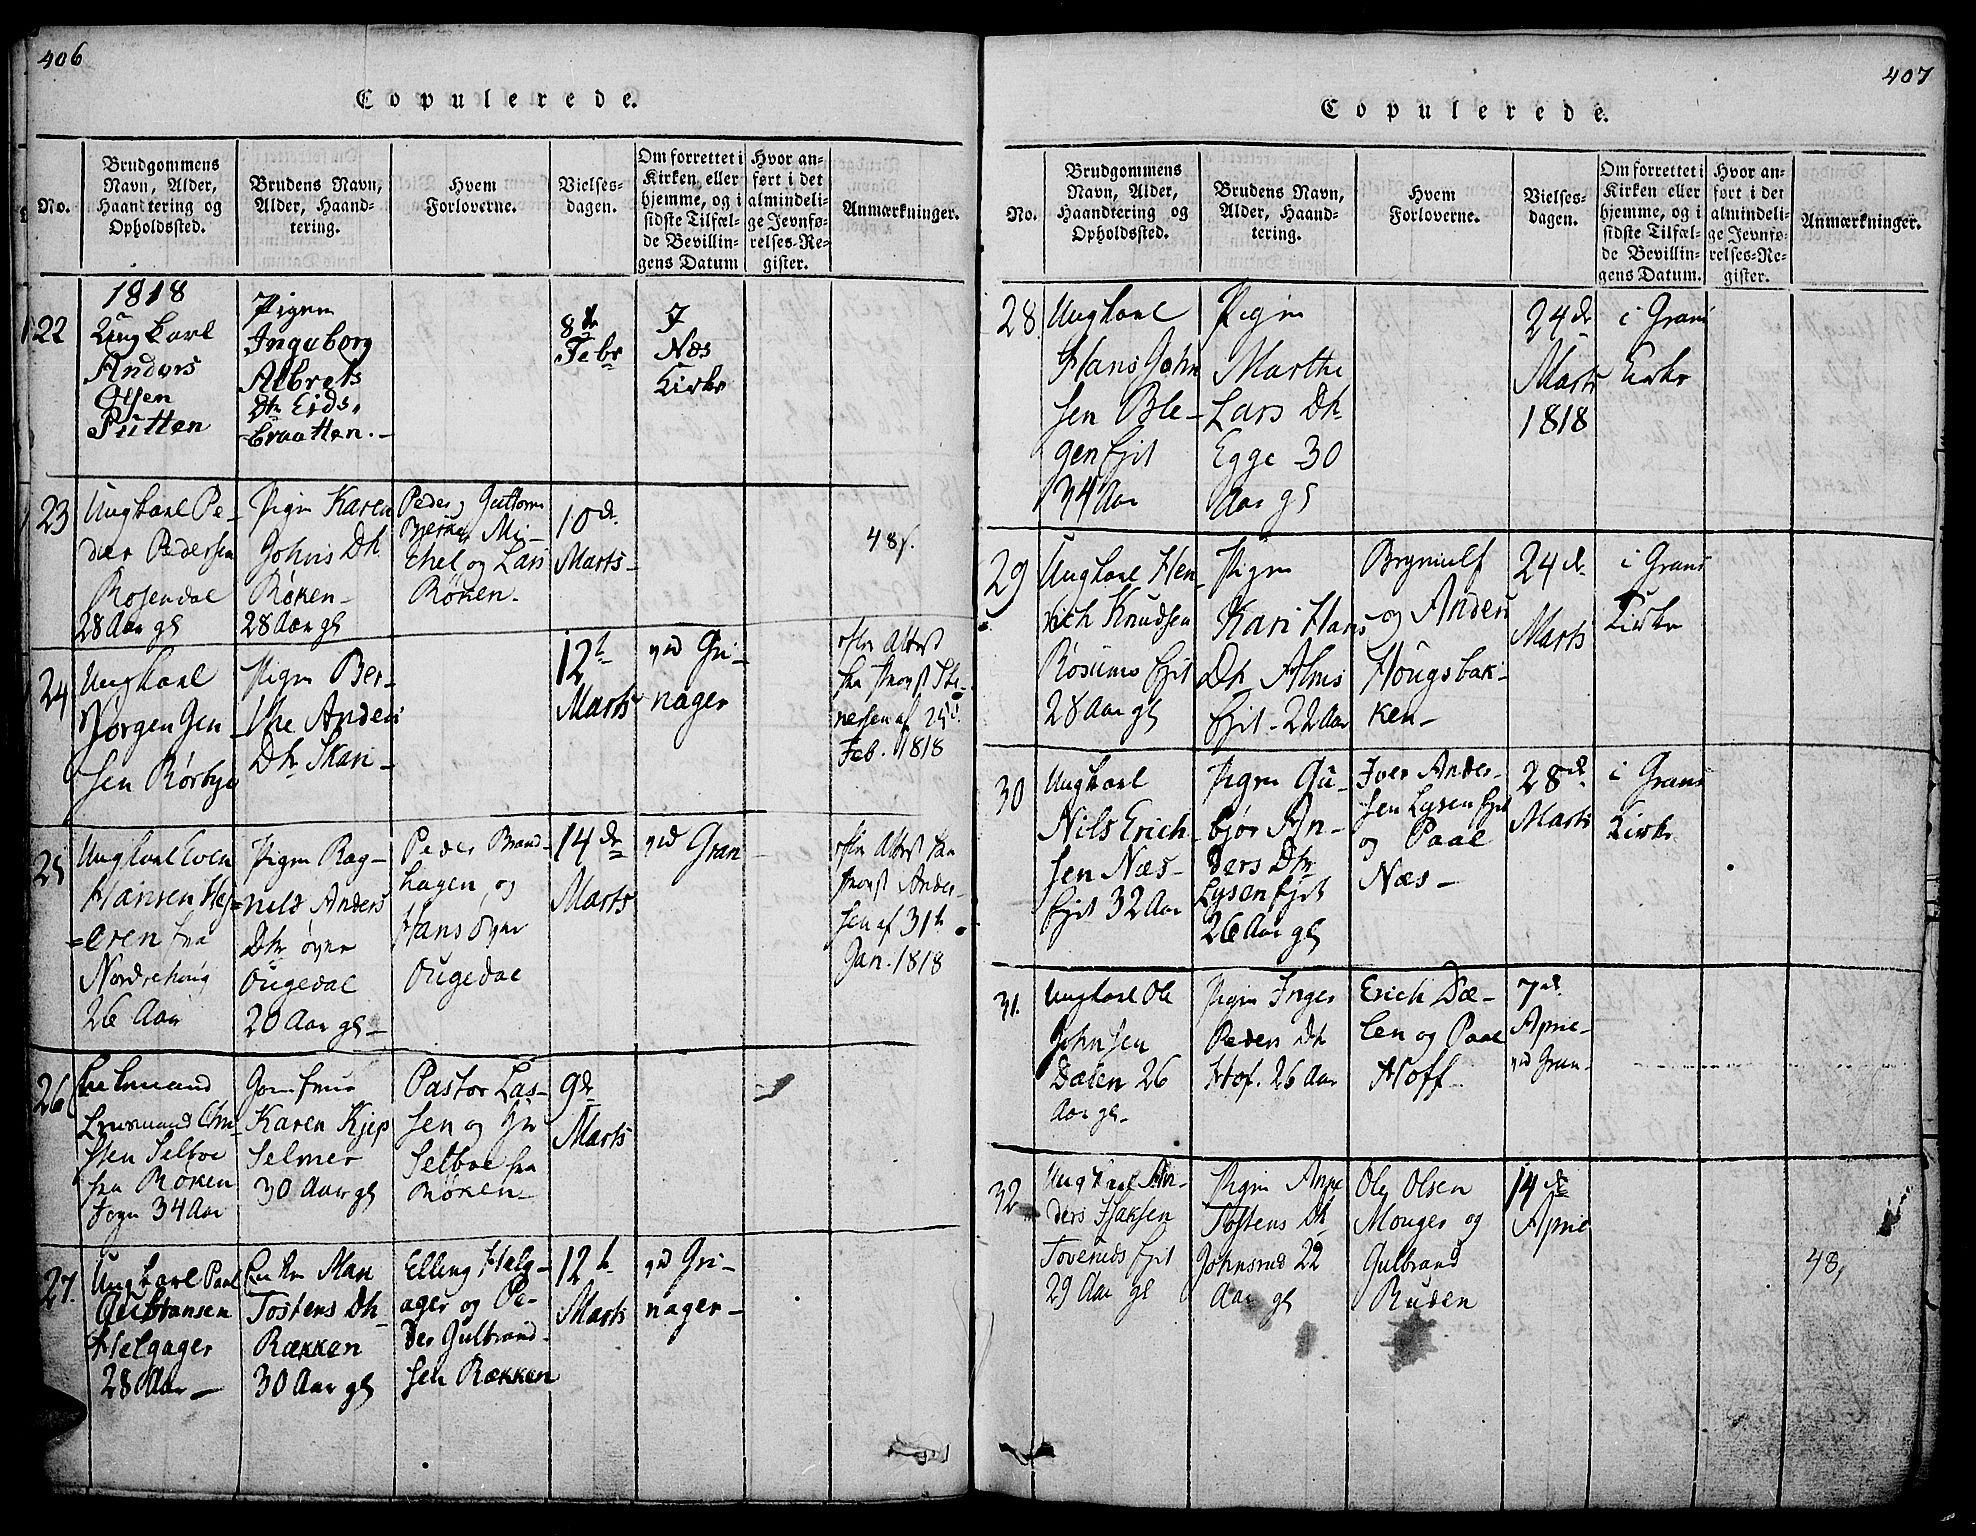 406
Copulerede.
No.
Brudgommens
Navn, Alder,
Haandtering og
Opholdssted.
Brudens Navn,
Alder, Haand-
tering.
Hvem
Forloverne.
Vielses-
dagen.
Om forrettet i
Kirken eller
hjemme, og i
sidste Tilfæl-
de Bevillin-
gens Datum
Hvor an-
ført i det
almindeli-
ge Jevnfø-
relses-Re-
gister.
Anmærkninger.
22
1818
Ungkarl
Anders
Olsen
Putten
Pigen
Ingeborg
Albrets
Dtr Eids-
braatten.-
8de
Febr
I
Næs
Kirke
23
Ungkarl Pe-
der Pedersen
Rosendal
28 Aar gl
Pigen Karen
Johns Dtr
Røken-
28 Aar gl
Peder og Guttorm
Bjerke, Mi-
chel og Lars
Røken-
10de
Marts-
48 s.
24
Ungkarl
Jørgen Jen-
sen Rørbye
Pigen Ber-
the Anders
Dtr Skari-
12te
Marts
ved Gri-
nager
efter Attest
fra Provst Ste-
nersen af 25de
Feb. 1818
25
Ungkarl Even
Hansen Hej-
=eren fra
Nordrehoug
26 Aar
Pigen Rag-
nild Anders
Dtr øvre
Ougedal
20 Aar gl-
Peder Brand-
hagen, og
Hans øvre
Ougedal
14de
Marts
ved Gran
efter Attest fra
Provst Ander-
sen af 31te
Jan. 1818
26
Enkemand
Lensmand Chri-
sten Selboe
fra Røken
Sogn 34 Aar
Jomfrue
Karen Kjep
Selmer
30 Aar gl
Pastor Las-
sen og Hr
Selboe fra
Røken-
9de
Marts
27.
Ungkarl Paal
Gulbransen
Helgager
28 Aar-
Enken Mari
Tostens Dtr
Rækken
30 Aar gl
Elling Helg-
ager og Pe-
der Gulbrand-
sen Rækken
12te
Marts
ved Gri-
nager-
407
Copulerede.
No.
Brudgommens
Navn, Alder,
Haandtering og
Opholdssted.
Brudens Navn,
Alder, Haand-
tering.
Hvem
Forloverne.
Vielses-
dagen.
Om forrettet i
Kirken eller
hjemme, og i
sidste Tilfæl-
de Bevillin-
gens Datum.
Hvor an-
ført i det
almindeli-
ge Jevnfø-
relses-Re-
gister.
Anmærkninger.
28
Ungkarl
Hans John
sen Ble-
gen Ejet
34 Aar
Pigen
Marthe
Lars Dtr
Egge 30
Aar gl
24de
Marts
1818
i Grans
Kirke
29
Ungkarl Hen-
rich Knudsen
Røsums Ejet
28 Aar gl
Pigen
Kari Hans
Dtr Alms
Ejet - 22 Aar
Bryniulf
og Anders
Hougsbak-
ken-
24de
Marts
i Grans
Kirke
30
Ungkarl
Nils Erich
sen Næs-
Ejet 32 Aar
Pigen Gu-
bjør An-
ders Dtr
Lysen Ejet
26 Aar gl
Iver Ander-
sen Lysen Ejet
og Paal
Næs-
28de
Marts
i Grans
Kirke
31.
Ungkarl Ole
Johnsen
Dælen 26
Aar gl-
Pigen Inger
Peders Dtr
Hof. 26 Aar
Erich Dæ-
len og Paal
Hoff-
7de
April-
ved Gran-
32
Ungkarl An-
ders Isaksen
Toveruds Ejet
29 Aar gl
Pigen Anne
Tostens Dtr
Johnsrud 22
Aar gl
Ole Olsen
Monger og
Gulbrand
Ruden
14de
April
48,